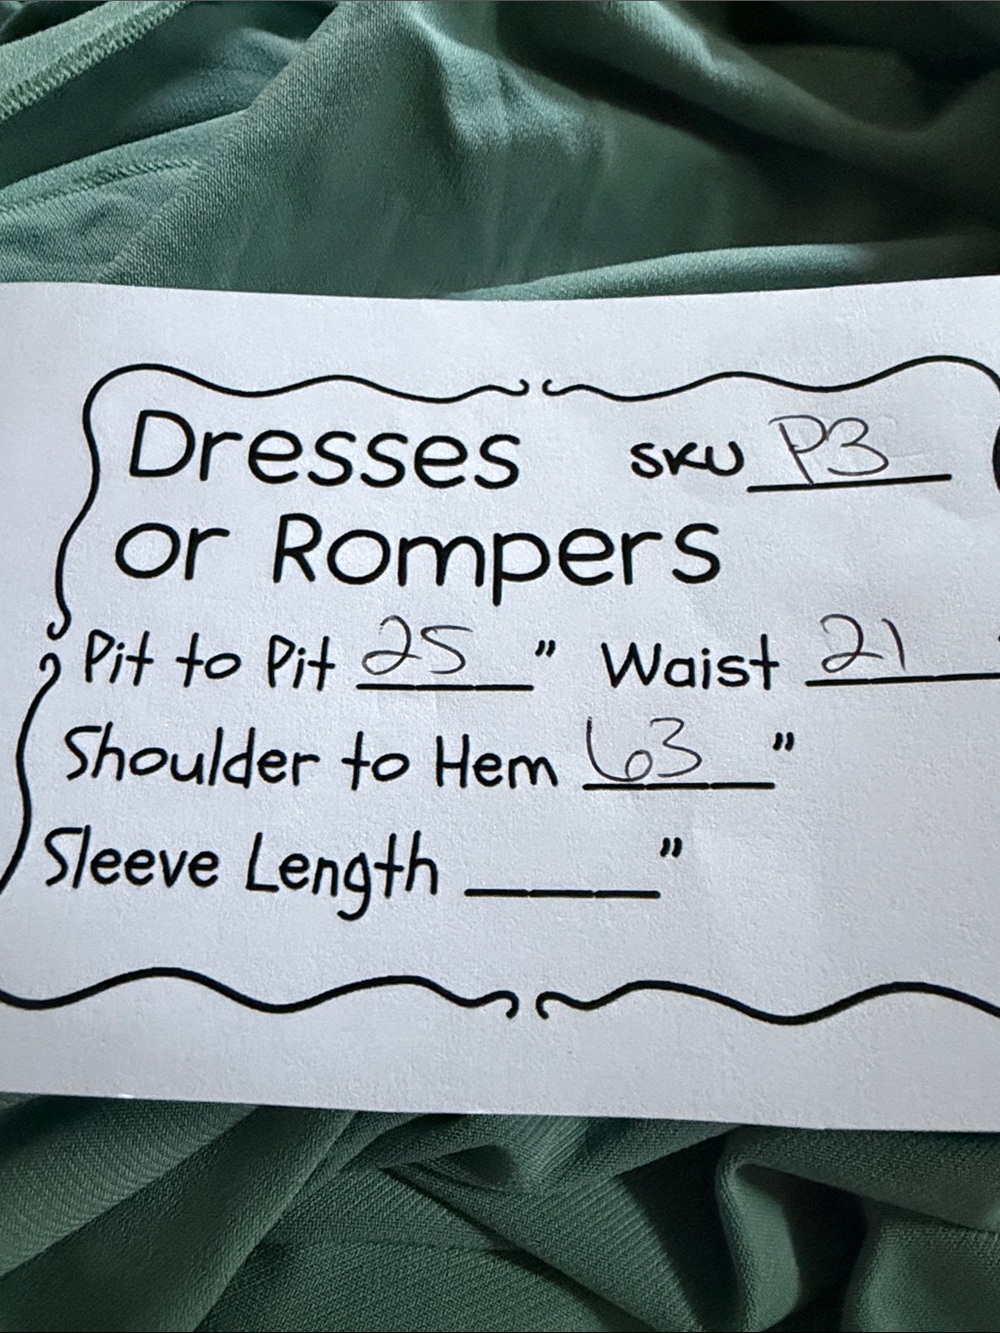 Dresses SKU P3
or Rompers
Pit to Pit 25 " Waist 21
Shoulder to Hem 63 "
Sleeve Length ____ "